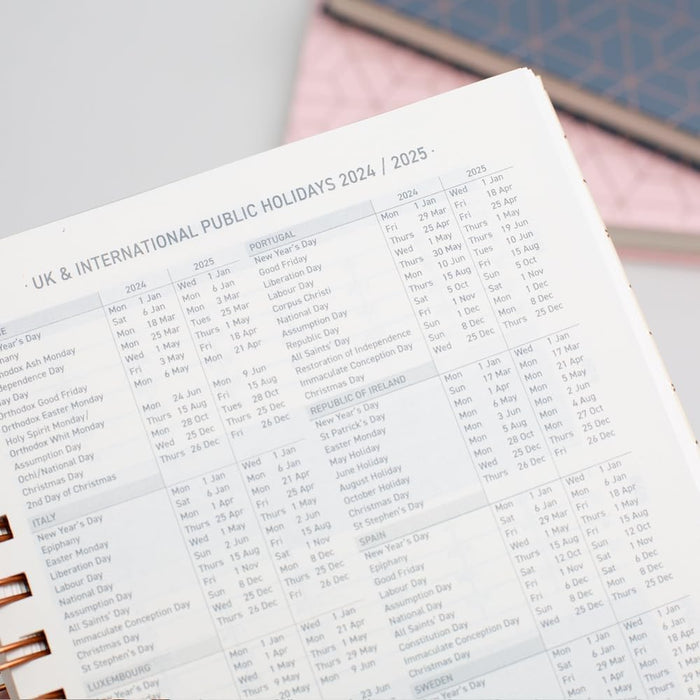 · UK & INTERNATIONAL PUBLIC HOLIDAYS 2024 / 2025 ·
2024 2025
Year's Day Mon 1 Jan Wed 1 Jan
Sat 6 Jan Mon 6 Jan
Orthodox Ash Monday Mon 18 Mar Mon 3 Mar
Independence Day Mon 25 Mar Tues 25 Mar
Day Wed 1 May Thurs 1 May
Orthodox Good Friday Fri 3 May Fri 18 Apr
Orthodox Easter Monday Mon 6 May Mon 21 Apr
Holy Spirit Monday/
Orthodox Whit Monday Mon 24 Jun Mon 9 Jun
Assumption Day Thurs 15 Aug Fri 15 Aug
Ochi/National Day Mon 28 Oct Tues 28 Oct
Christmas Day Wed 25 Dec Thurs 25 Dec
2nd Day of Christmas Thurs 26 Dec Fri 26 Dec
ITALY
New Year's Day Mon 1 Jan Wed 1 Jan
Epiphany Sat 6 Jan Mon 6 Jan
Easter Monday Mon 1 Apr Mon 21 Apr
Liberation Day Thurs 25 Apr Fri 25 Apr
Labour Day Wed 1 May Thurs 1 May
National Day Sun 2 Jun Mon 2 Jun
Assumption Day Thurs 15 Aug Fri 15 Aug
All Saints' Day Fri 1 Nov Sat 1 Nov
Immaculate Conception Day Sun 8 Dec Mon 8 Dec
Christmas Day Wed 25 Dec Thurs 25 Dec
St Stephen's Day Thurs 26 Dec Fri 26 Dec
LUXEMBOURG
New Year's Day Mon 1 Jan Wed 1 Jan
Mon 1 Apr Mon 21 Apr
Wed 1 May Thurs 1 May
Thurs 9 May
20 May Mon 9 Jun
23 Jun
2024 2025
PORTUGAL
New Year's Day Mon 1 Jan Wed 1 Jan
Good Friday Fri 29 Mar Fri 18 Apr
Liberation Day Thurs 25 Apr Fri 25 Apr
Labour Day Wed 1 May Thurs 1 May
Corpus Christi Thurs 30 May Thurs 19 Jun
National Day Mon 10 Jun Tues 10 Jun
Assumption Day Thurs 15 Aug Fri 15 Aug
Republic Day Sat 5 Oct Sun 5 Oct
All Saints' Day Fri 1 Nov Sat 1 Nov
Restoration of Independence Sun 1 Dec Mon 1 Dec
Immaculate Conception Day Sun 8 Dec Mon 8 Dec
Christmas Day Wed 25 Dec Thurs 25 Dec
REPUBLIC OF IRELAND
New Year's Day Mon 1 Jan Wed 1 Jan
St Patrick's Day Sun 17 Mar Mon 17 Mar
Easter Monday Mon 1 Apr Mon 21 Apr
May Holiday Mon 6 May Mon 5 May
June Holiday Mon 3 Jun Mon 2 Jun
August Holiday Mon 5 Aug Mon 4 Aug
October Holiday Mon 28 Oct Mon 27 Oct
Christmas Day Wed 25 Dec Thurs 25 Dec
St Stephen's Day Thurs 26 Dec Fri 26 Dec
SPAIN
New Year's Day Mon 1 Jan Wed 1 Jan
Epiphany Sat 6 Jan Mon 6 Jan
Good Friday Fri 29 Mar Fri 18 Apr
Labour Day Wed 1 May Thurs 1 May
Assumption Day Thurs 15 Aug Fri 15 Aug
National Day Sat 12 Oct Sun 12 Oct
All Saints' Day Fri 1 Nov Sat 1 Nov
Constitution Day Fri 6 Dec Sat 6 Dec
Immaculate Conception Day Sun 8 Dec Mon 8 Dec
Christmas Day Wed 25 Dec Thurs 25 Dec
SWEDEN
New Year's Day Mon 1 Jan Wed 1 Jan
Sat 6 Jan Mon 6 Jan
Fri 29 Mar Fri 18 Apr
Mon 1 Apr